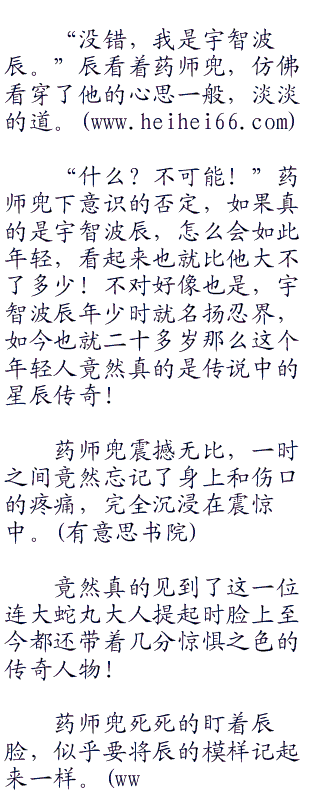 “没错，我是宇智波
辰。”辰看着药师兜，仿佛
看穿了他的心思一般，淡淡
的道。(www.heihei66.com)
“什么？不可能！”药
师兜下意识的否定，如果真
的是宇智波辰，怎么会如此
年轻，看起来也就比他大不
了多少！不对好像也是，宇
智波辰年少时就名扬忍界，
如今也就二十多岁那么这个
年轻人竟然真的是传说中的
星辰传奇！
药师兜震撼无比，一时
之间竟然忘记了身上和伤口
的疼痛，完全沉浸在震惊
中。(有意思书院)
竟然真的见到了这一位
连大蛇丸大人提起时脸上至
今都还带着几分惊惧之色的
传奇人物！
药师兜死死的盯着辰
脸，似乎要将辰的模样记起
来一样。(ww